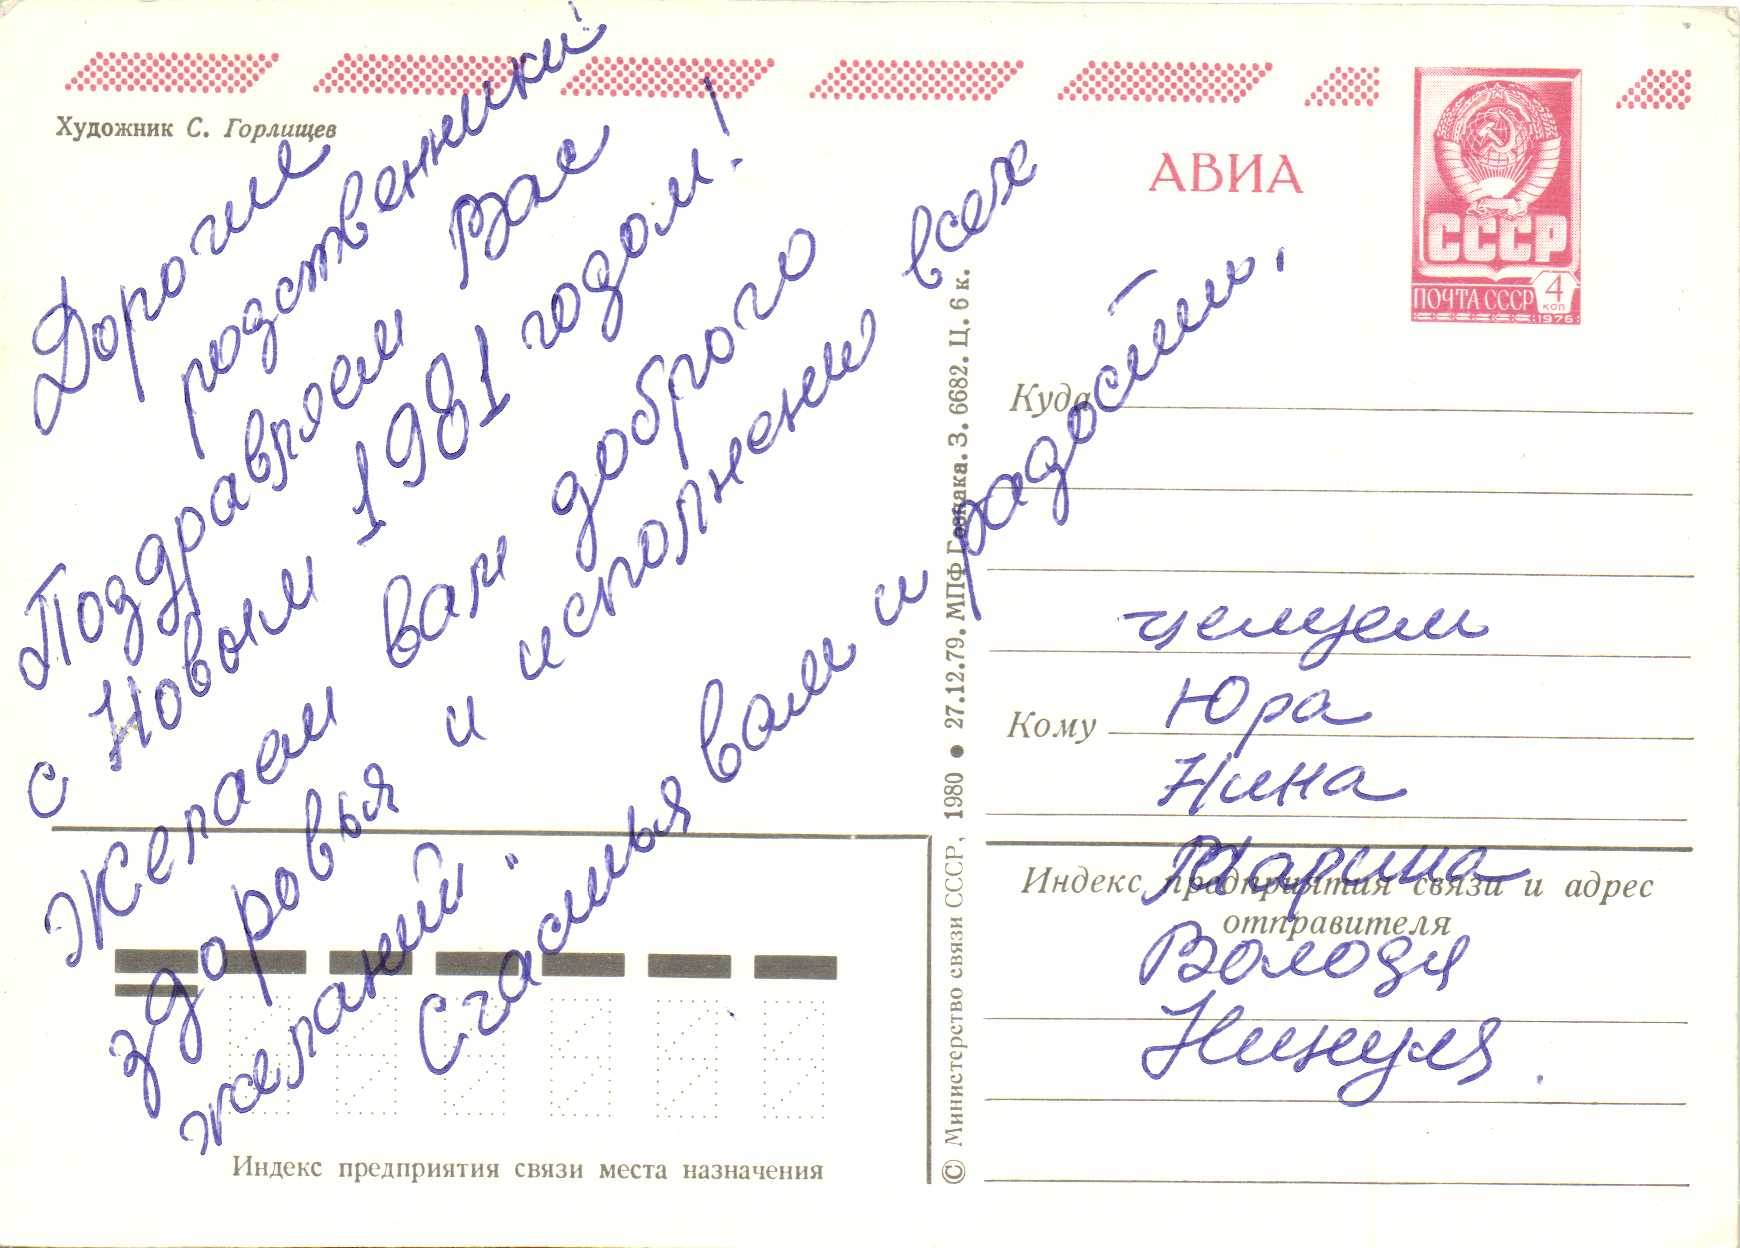 Художник С. Горлищев
АВИА
СССР
ПОЧТА СССР
4
коп
1976
Дорогие
родственники!
Поздравляем Вас
с Новым 1981 годом!
Желаем вам доброго
здоровья и исполнени всех
желаний.
Счастья вам и радости.
Куда
целуем
Кому
Юра
Нина
Марина
Индекс предприятия связи и адрес
отправителя
Володя
Нинуля.
Индекс предприятия связи места назначения
© Министерство связи СССР, 1980 ● 27.12.79. МПФ Гознака. З. 6682. Ц. 6 к.